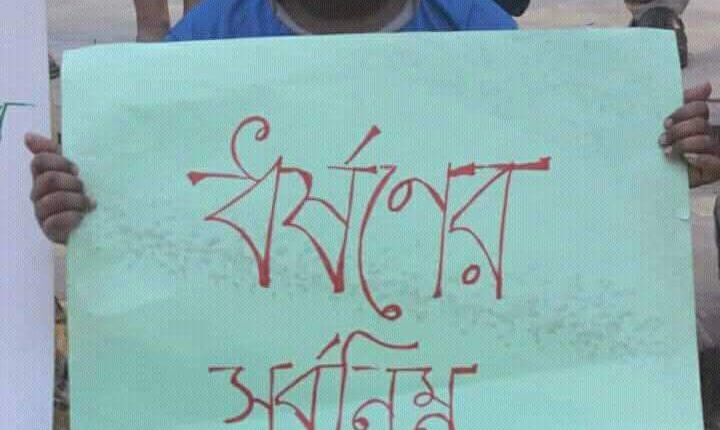 ধর্ষণের
সর্বনিম্ন